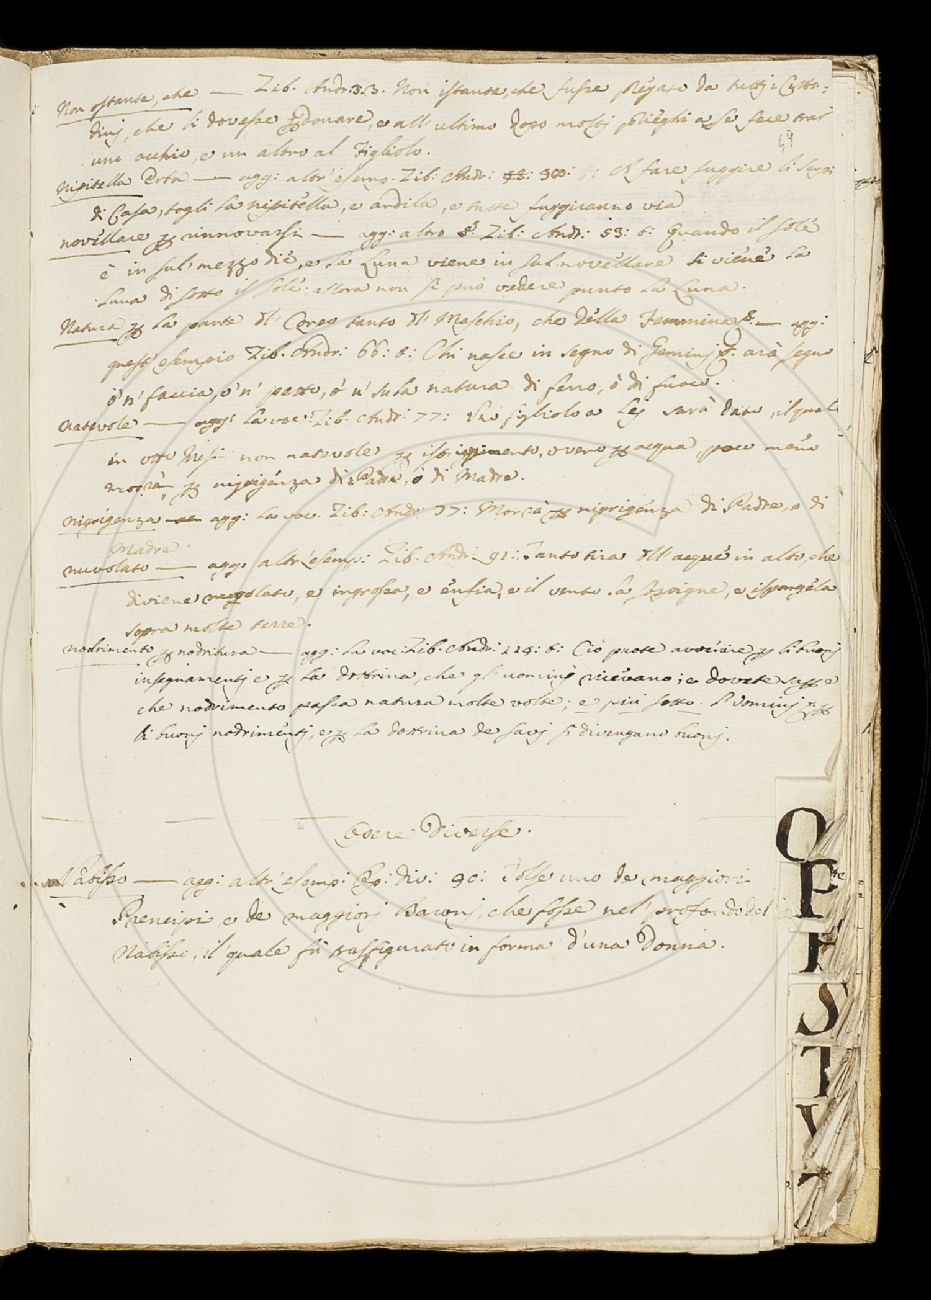 Non ostante, che — Zib: Andr: 33. Non istante, che fusse pregato da tutti i Citta:
dinj, che li dovesse perdonare, e all'ultimo dopo moltj prieghi a se fece trar
uno occhio, e un altro al Figliolo.
69
Nipitella Erba — agg: altr'esemp: Zib: Andr: A fare fuggire li Serpi
di Casa, togli la nipitella, e ardila, e tutte fuggiranno via
novellare per rinnovarsi — agg: altro Zib: Andr: 53: 6: Quando il sole
è in sul mezzo dì, e la Luna viene in sul novellare si viene la
Luna di sotto il sole: allora non si può vedere punto la Luna.
Natura per la parte del Corpo tanto del Maschio, che della Femmina — agg:
quest'esempio Zib: Andr: 66: 6: Chi nasce in segno di Geminj arà segno
ò 'n faccia, ò 'n petto, ò 'n su la natura di ferro, ò di fuoco.
natevole — agg: la voc: Zib: Andr: 77: Uno figliolo a lej sarà dato, il qual
in otto Mesi non natevole per, overo per acqua, poco meno
morrà, per niprigenza di Padre, ò di Madre.
niprigenza — agg: la voc: Zib: Andr: 77: Morrà per niprigenza di Padre, o di
Madre.
nuvolato — agg: altr'esemp: Zib: Andr: 91: Tanto tira dell'acque in alto, che
diviene nuvolato, e ingrossa, e enfia, e il vento la spigne, e ispargela
sopra molte terre.
nodrimento per nodritura — agg: la voc: Zib: Andr: 114: 6: Ciò puote avvenire per li buonj
insegnamentj e per la dottrina, che gl'uominj ricievano; e dovete sapere
che nodrimento passa natura molte volte; e più sotto. L'uominj per
li buonj nodrimentj, e per la dottrina de savj si divengano buonj.
Opere Diverse.
Nabisso — agg: altr'esemp: Op: div: 90: Tolse uno de maggiori
Prencipi, e de maggiorj Baronj, che fosse nel profondo del
Nabisso, il quale fù trasfigurato in forma d'una Donna.
O
P
S
T
V
Z